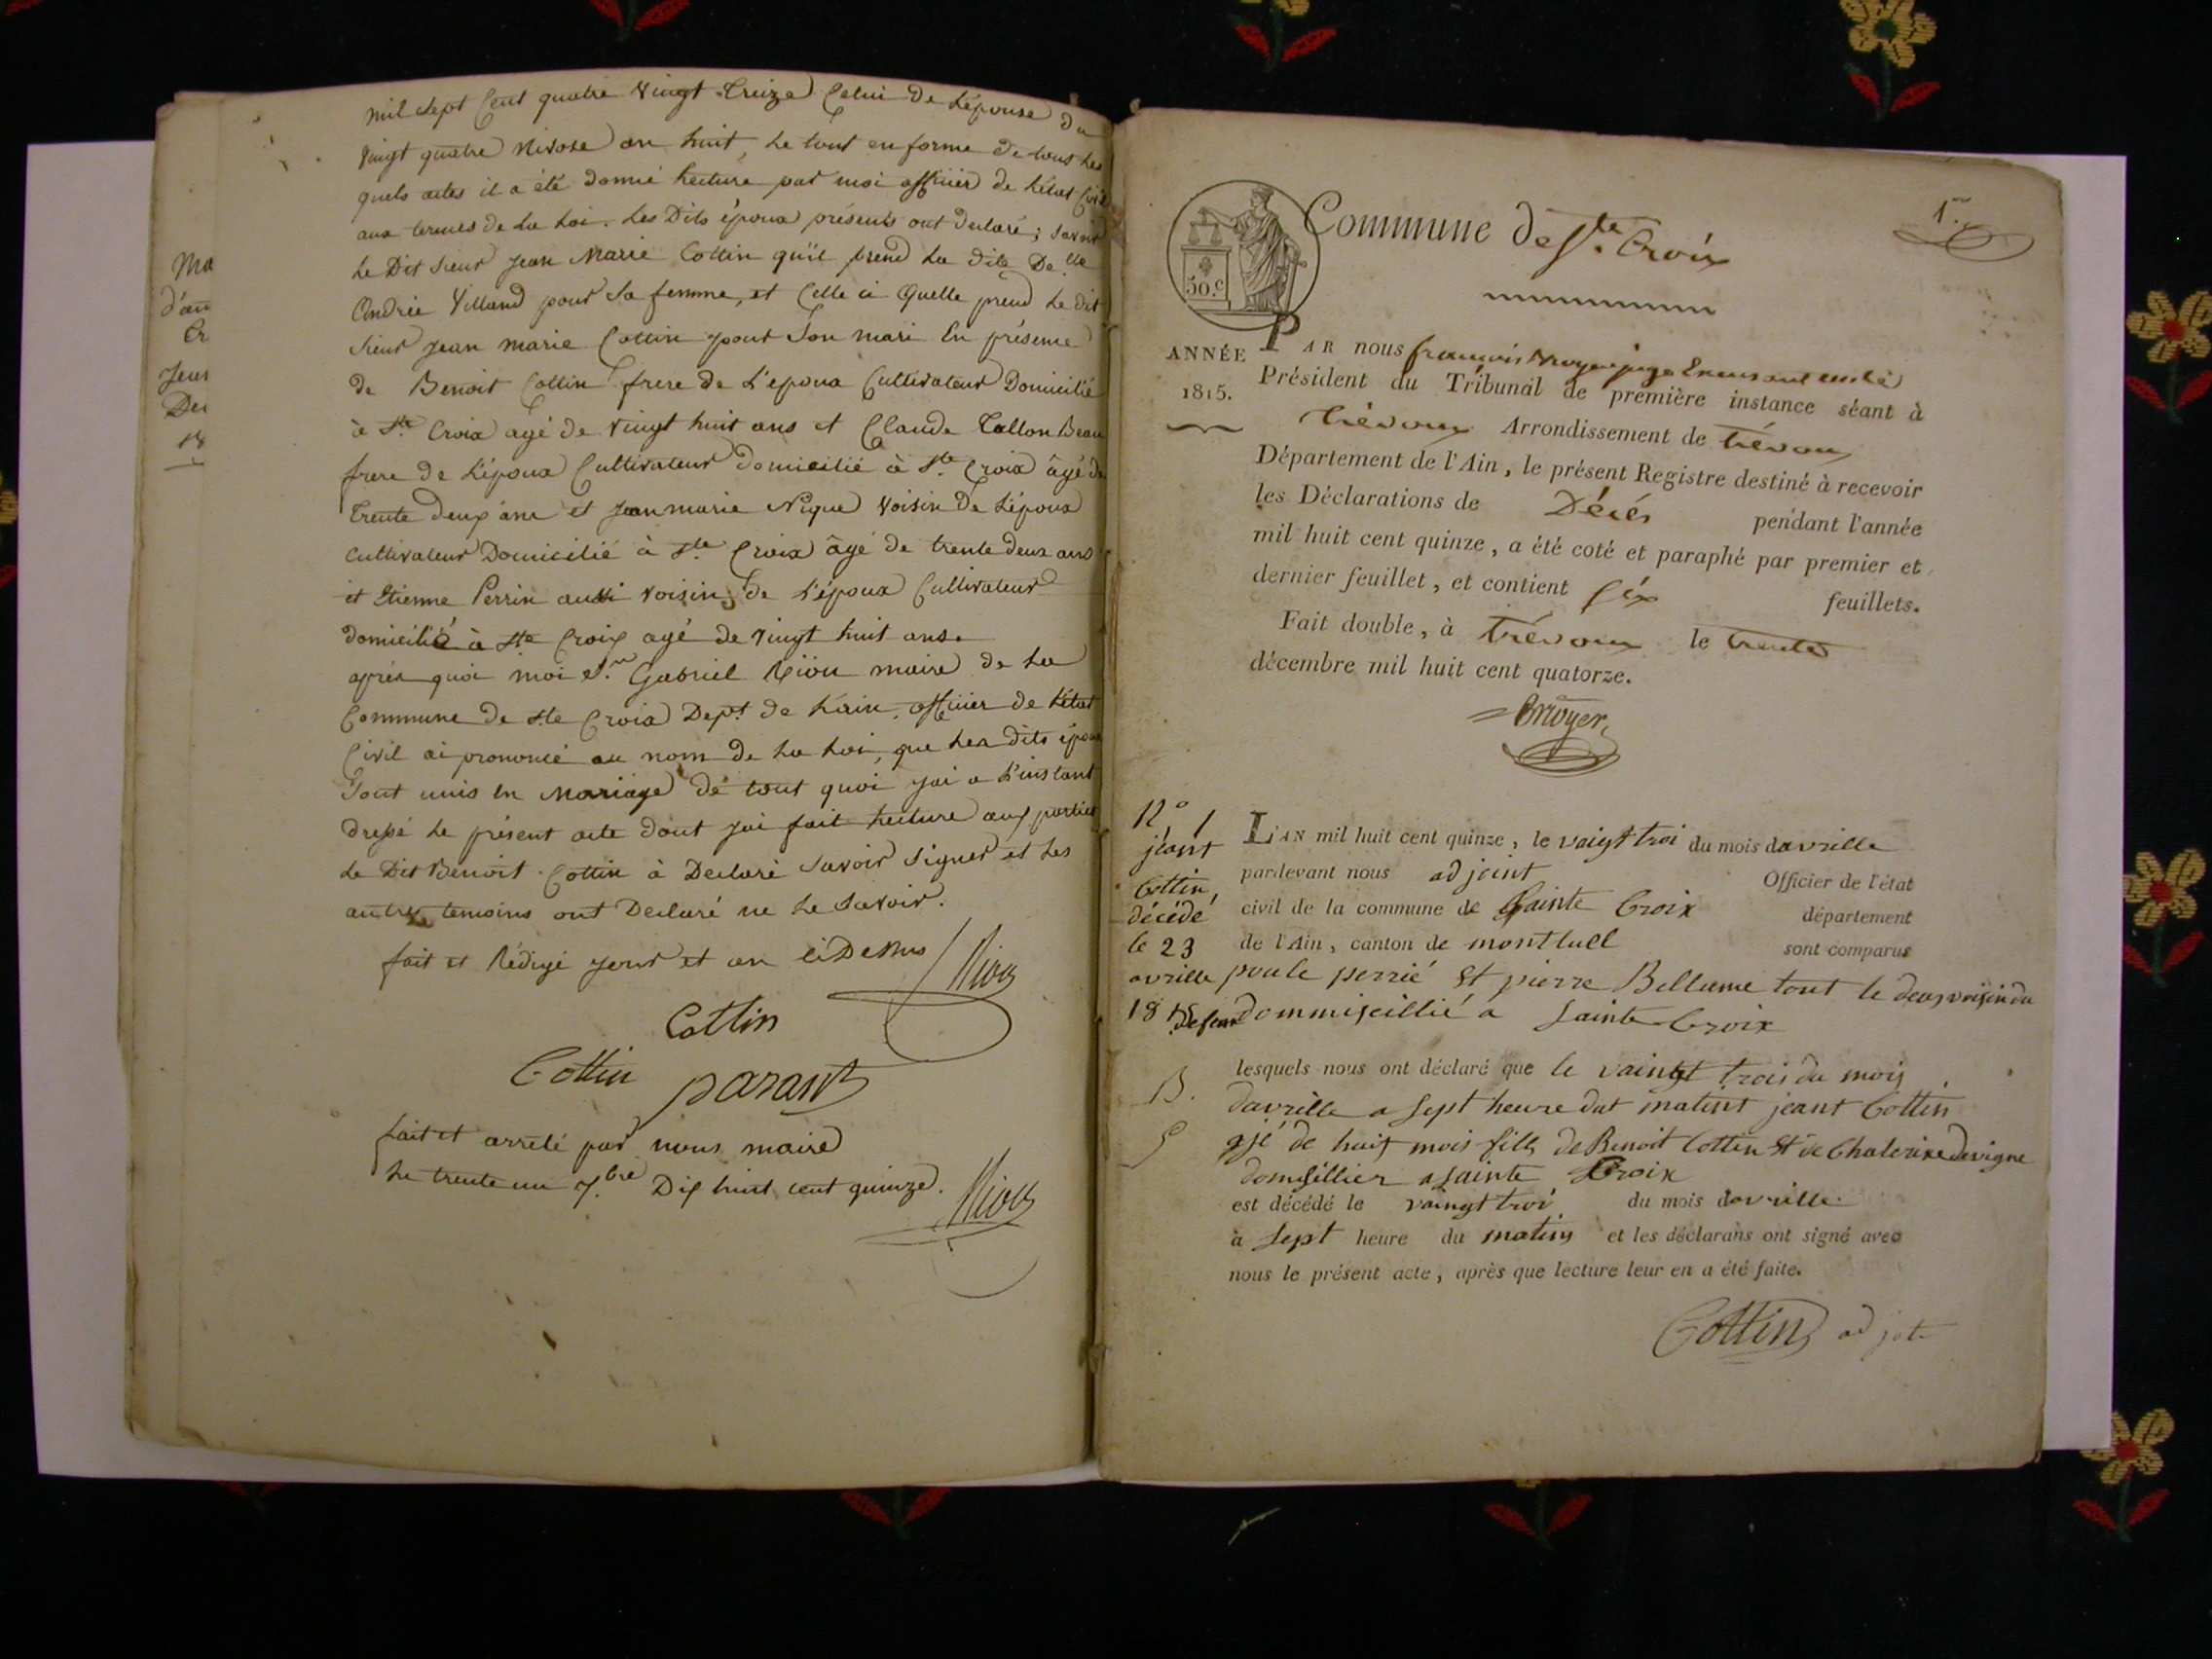 mil sept Cent quatre vingt treize Celui de L'épouse du
vingt quatre Nivose an huit, Le tout en forme de tous Les
quels actes il a été donné Lecture par moi officier de L'état Civil
aux termes de La Loi. Les Dits époux présents ont declaré; savoir
Le Dit sieur Jean Marie Cottin qu'il prend La dite De.lle
Andrée Villand pour sa femme, et Celle ci quelle prend Le dit
sieur Jean marie Cottin pour Son mari En présence
de Benoit Cottin frere de L'epoux Cultivateur Domicilié
à Ste. Croix agé de vingt huit ans et Claude Tallon Beau
frere de L'époux Cultivateur domicilié à Ste Croix âgé de
trente deux ans et Jean marie Nique voisin de L'époux
Cultivateur Domicilié à Ste Croix âgé de trente deux ans
et Etienne Perrin aussi voisin de L'époux Cultivateur
domicilié à Ste Croix agé de vingt huit ans.
aprés quoi moi Sr. Gabriel Riou maire de La
Commune de Ste Croix Dept. de L'ain, officier de L'état
Civil ai prononcé au nom de La Loi, que Les dits époux
Sont unis En Mariage de tout quoi j'ai a L'instant
dressé Le présent acte dont jai fait Lecture aux parties
Le Dit Benoit Cottin à Declaré Savoir Signer et Les
autres temoins ont Declaré ne Le Savoir.
fait et Rédigé jour et an ci Dessus
Riou
Cottin
Cottin parant
fait et arrelé par nous maire
Le trente un 7.bre Dix huit cent quinze.
Riou
Ma
d'an
Cr
Jeur
Der
18
1.er
Commune de Ste. Croix
50.c
ANNÉE
1815.
PAR nous françois
Président du Tribunal de première instance séant à
trévoux Arrondissement de trévoux
Département de l'Ain, le présent Registre destiné à recevoir
les Déclarations de Décés pendant l'année
mil huit cent quinze, a été coté et paraphé par premier et
dernier feuillet, et contient Six feuillets.
Fait double, à trévoux le trente
décembre mil huit cent quatorze.
Bruyer
N° 1
jéant
Cottin,
décédé
le 23
avrille
1815
L'AN mil huit cent quinze, le vaigt troi du mois davrille
pardevant nous adjoint Officier de l'état
civil de la commune de Sainte Croix département
de l'Ain, canton de montluel sont comparus
poule perrié et pierre Bellume tout le deus voisin du
defent dommiseillié a Sainte Croix
lesquels nous ont déclaré que le vaingt trois du mois
davrille a Sept heure dut matint jeant Cottin
gjé de huit mois fills de Benoit Cottin et de Chaterine devigne
domisillier a sainte Croix
est décédé le vaingt troi du mois davrille
à Sept heure du matins et les déclarans ont signé avec
nous le présent acte, après que lecture leur en a été faite.
Cottin adjot